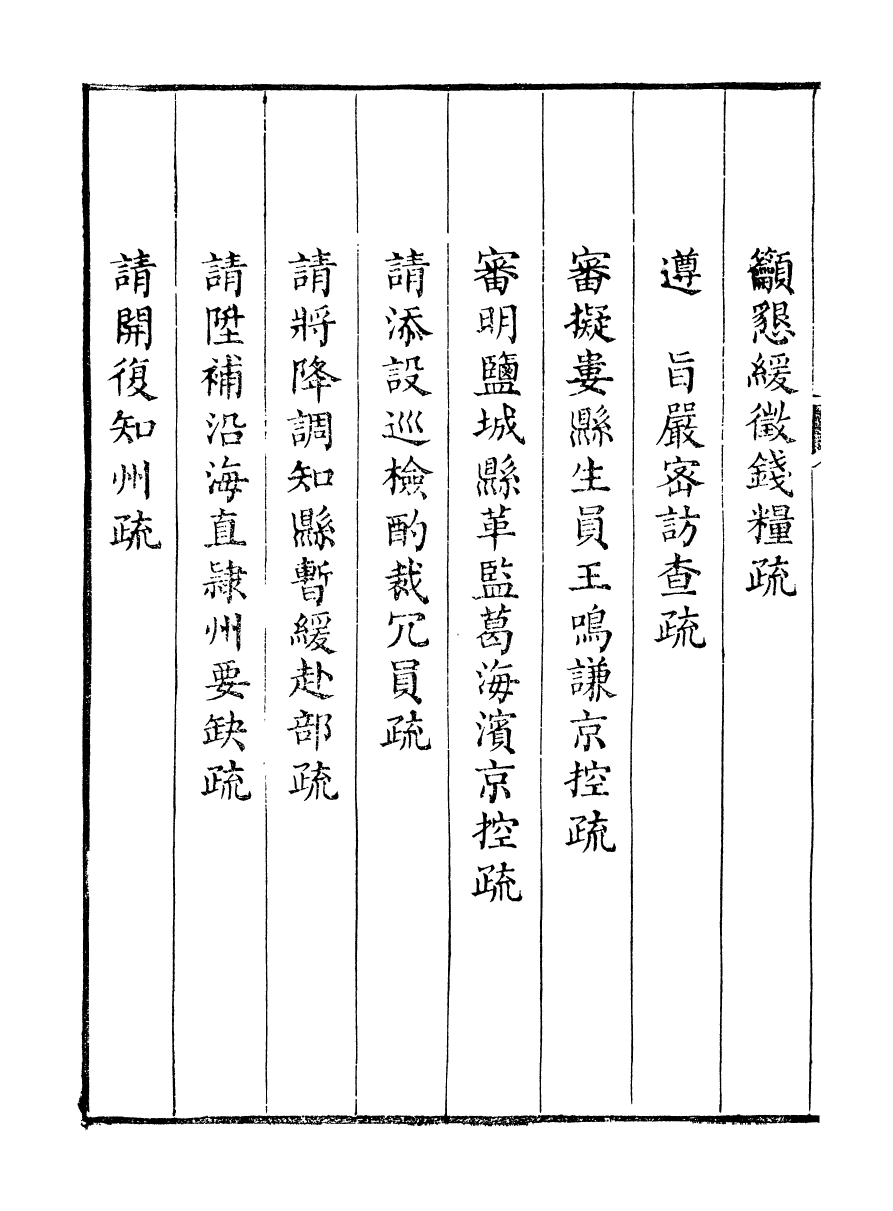 籲懇緩徵錢糧疏
遵　旨嚴密訪查疏
審擬婁縣生員王鳴謙京控疏
審明鹽城縣革監葛海濱京控疏
請添設巡檢酌裁冗員疏
請將降調知縣暫緩赴部疏
請陞補沿海直隸州要缺疏
請開復知州疏